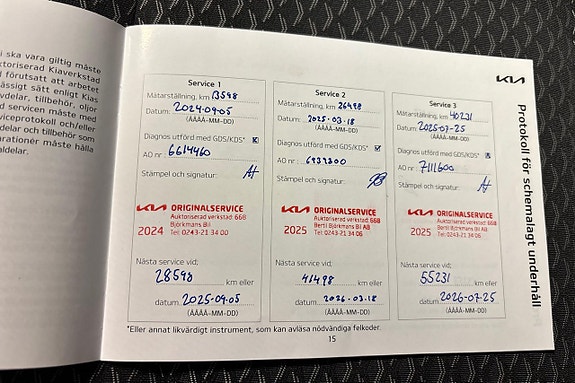 i ska vara giltig måste
ktoriserad Kiaverkstad
förutsatt att arbetet
ässigt sätt enligt Kias
vdelar, tillbehör, oljor
d servicen måste med
viceprotokoll och/eller
delar och tillbehör som
rationer måste hålla
aldelar.
KIA
Protokoll för schemalagt underhåll
Service 1
Mätarställning, km 13598
Datum: 2024-09-05
(ÅÅÅÅ-MM-DD)
Diagnos utförd med GDS/KDS*
AO nr : 6614460
Stämpel och signatur:
KIA ORIGINALSERVICE
Auktoriserad verkstad: 668
Björkmans Bil
2024 Tel: 0243-21 34 00
Nästa service vid;
28598 km eller
datum 2025-09-05
(ÅÅÅÅ-MM-DD)
Service 2
Mätarställning, km 26498
Datum: 2025-03-18
(ÅÅÅÅ-MM-DD)
Diagnos utförd med GDS/KDS*
AO nr : 6939300
Stämpel och signatur:
KIA ORIGINALSERVICE
Auktoriserad verkstad: 668
Bertil Björkmans Bil AB
2025 Tel: 0243-21 34 06
Nästa service vid;
41498 km eller
datum 2026-03-18
(ÅÅÅÅ-MM-DD)
Service 3
Mätarställning, km 40231
Datum: 2025-07-25
(ÅÅÅÅ-MM-DD)
Diagnos utförd med GDS/KDS*
AO nr : 7111600
Stämpel och signatur:
KIA ORIGINALSERVICE
Auktoriserad verkstad: 668
Bertil Björkmans Bil AB
2025 Tel: 0243-21 34 06
Nästa service vid;
55231 km eller
datum 2026-07-25
(ÅÅÅÅ-MM-DD)
*Eller annat likvärdigt instrument, som kan avläsa nödvändiga felkoder.
15